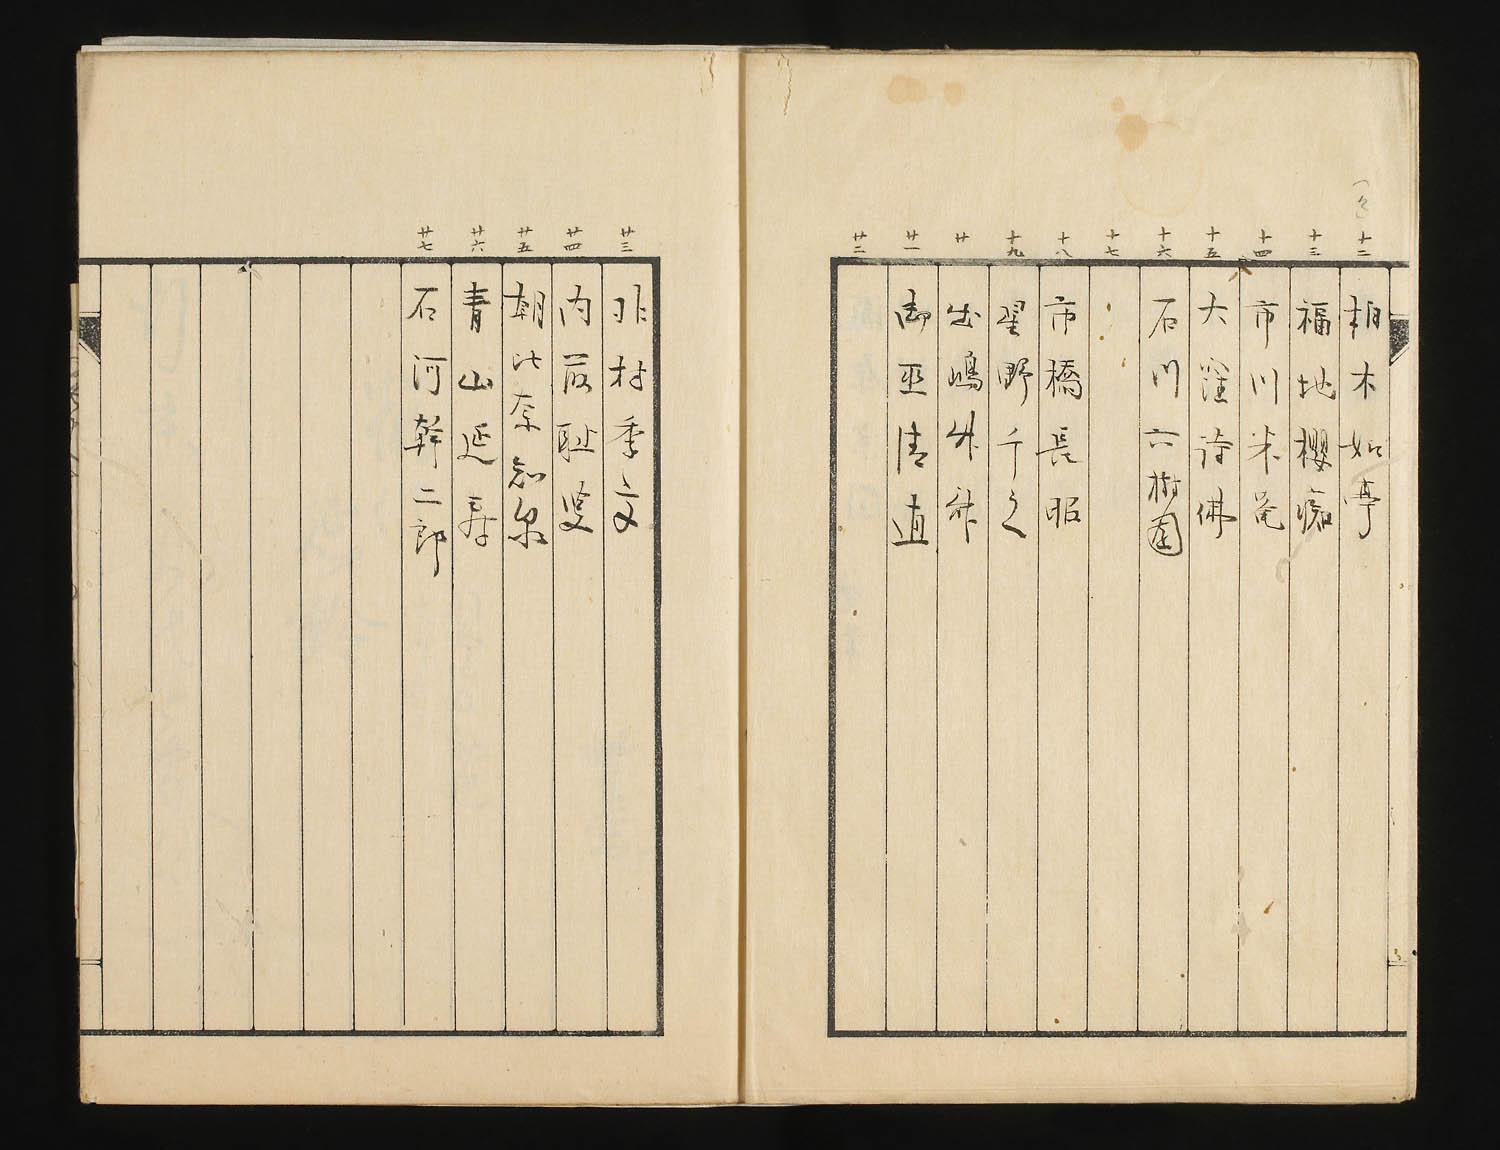 十二 柏木如亭
十三 福地櫻痴
十四 市川米菴
十五 大窪詩佛
十六 石川六樹園
十七
十八 市橋長昭
十九 星野千之
廿
廿一 御巫清直
廿二
廿三 北村季文
廿四 内藤耻叟
廿五 朝比奈知泉
廿六 青山延寿
廿七 石河幹二郎